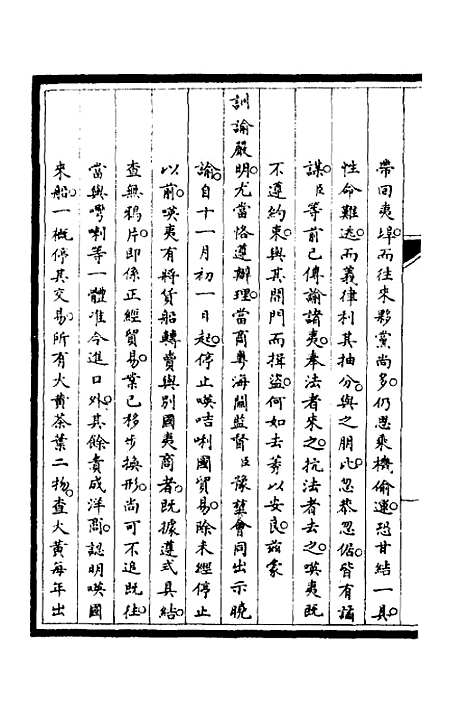 帶回夷埠。而往來夥黨尚多。仍恐乘機偷運。恐甘結一具。
性命難逃。而義律利其抽分。與之朋比。忽恭忽倨。皆有詭
謀。臣等前已傳諭諸夷。奉法者來之。抗法者去之。嘆夷既
不遵約束。與其開門而揖盜。何如去莠以安良。茲蒙
訓諭嚴明。尤當恪遵辦理。當商粵海關監督臣豫堃會同出示曉
諭。自十一月初一日起。停止𠸄咭唎國貿易。除未經停止
以前。𠸄夷有將貨船轉賣與別國夷商者。既據遵式具結。
查無鴉片。即係正經貿易。業已移步換形。尚可不追既往。
當與嘪唎等一體准令進口外。其餘責成洋商。認明𠸄國
來船。一概停其交易。所有大黃茶葉二物。查大黃每年出